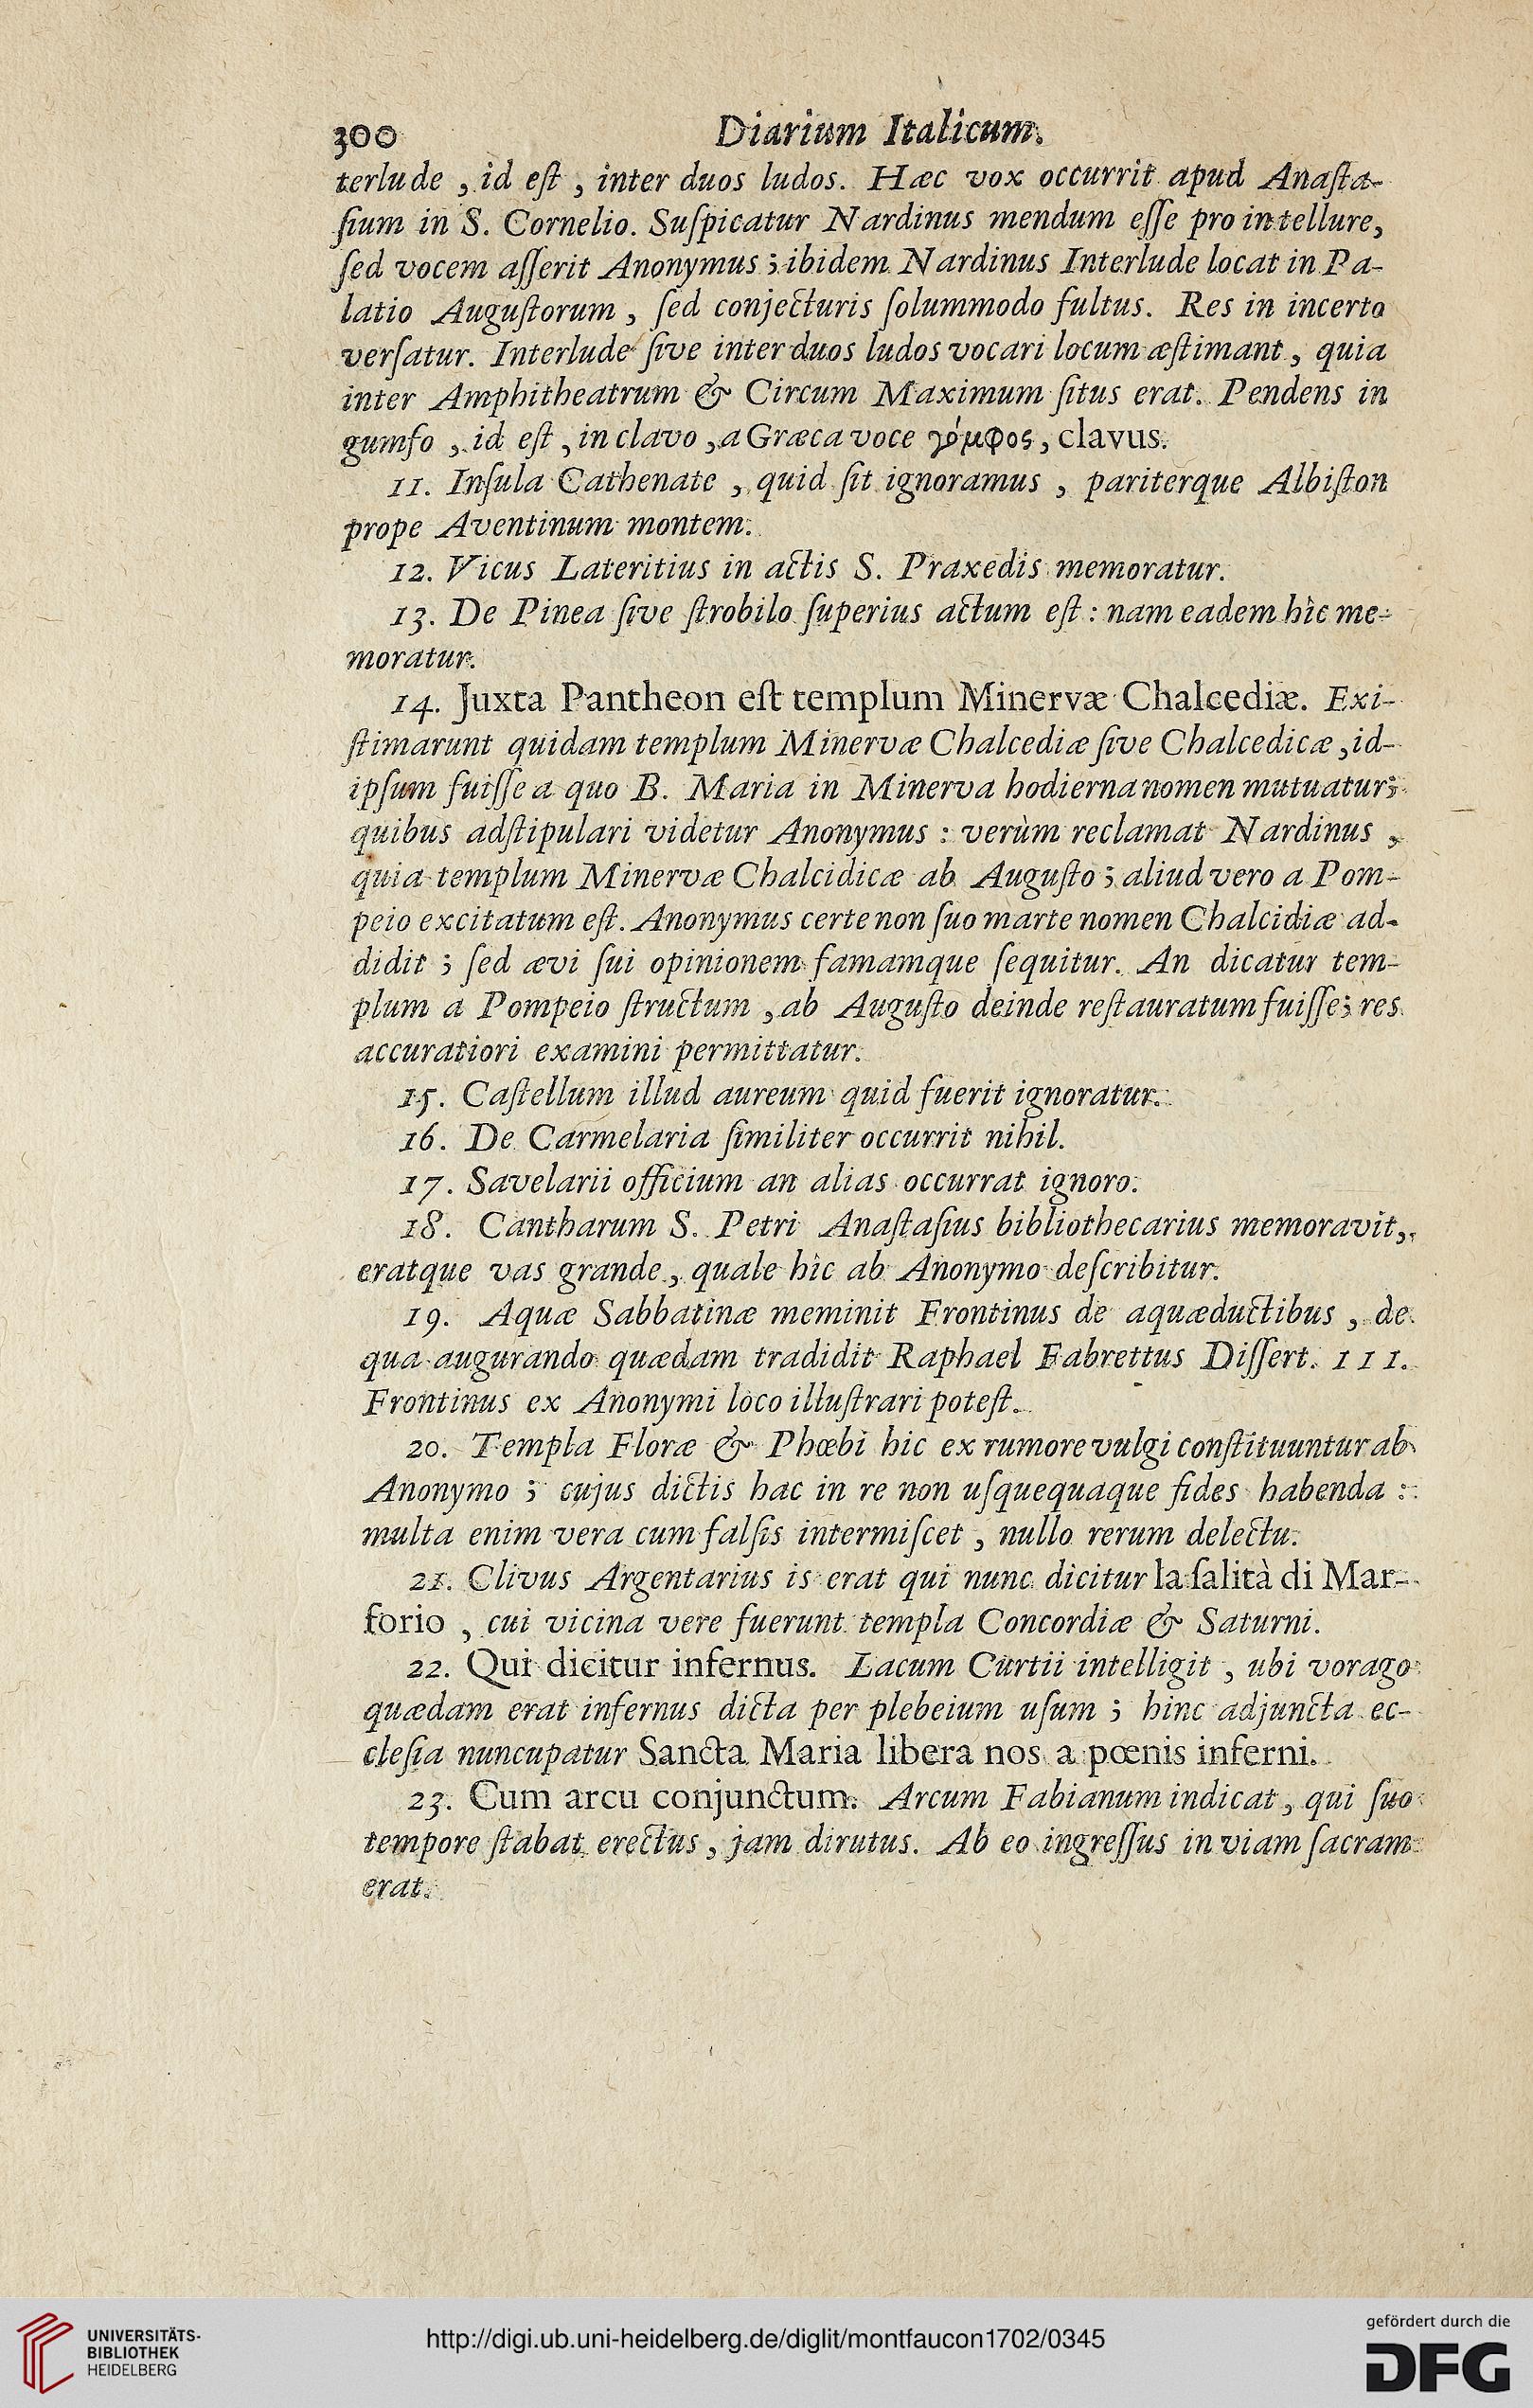 300 Diarium Italicum.
terlude , id eſt , inter duos ludos. Hæc vox occurrit apud Anaſta-
ſium in S. Cornelio. Suſpicatur Nardinus mendum eſſe pro in tellure,
ſed vocem aſſerit Anonymus ; ibidem Nardinus Interlude locat in Pa-
latio Auguſtorum , ſed conjecturis ſolummodo fultus. Res in incerto
verſatur. Interlude ſive inter duos ludos vocari locum æſtimant , quia
inter Amphitheatrum & Circum Maximum ſitus erat. Pendens in
gumfo , id eſt , in clavo , a Græca voce γόμφος, clavus.
11. Inſula Cathenate , quid ſit ignoramus , pariterque Albiſton
prope Aventinum montem.
12. Vicus Lateritius in actis S. Praxedis memoratur.
13. De Pinea ſive ſtrobilo ſuperius actum eſt : nam eadem hìc me-
moratur.
14. Juxta Pantheon eſt templum Minervæ Chalcediæ. Exi-
ſtimarunt quidam templum Minervæ Chalcediæ ſive Chalcedicæ , id-
ipſum fuiſſe a quo B. Maria in Minerva hodierna nomen mutuatur ;
quibus adſtipulari videtur Anonymus : verùm reclamat Nardinus ,
quia templum Minervæ Chalcidicæ ab Auguſto ; aliud vero a Pom-
peio excitatum eſt. Anonymus certe non ſuo marte nomen Chalcidiæ ad-
didit ; ſed ævi ſui opinionem famamque ſequitur. An dicatur tem-
plum a Pompeio ſtructum , ab Auguſto deinde reſtauratum fuiſſe ; res
accuratiori examini permittatur.
15. Caſtellum illud aureum quid fuerit ignoratur.
16. De Carmelaria ſimiliter occurrit nihil.
17. Savelarii officium an alias occurrat ignoro.
18. Cantharum S. Petri Anaſtaſius bibliothecarius memoravit ,
eratque vas grande , quale hìc ab Anonymo deſcribitur.
19. Aquæ Sabbatinæ meminit Frontinus de aquæductibus , de
qua augurando quædam tradidit Raphael Fabrettus Diſſert. III.
Frontinus ex Anonymi loco illuſtrari poteſt.
20. Templa Floræ & Phœbi hic ex rumore vulgi conſtituuntur ab
Anonymo ; cujus dictis hac in re non uſquequaque fides habenda :
multa enim vera cum falſis intermiſcet , nullo rerum delectu.
21. Clivus Argentarius is erat qui nunc dicitur la ſalità di Mar-
forio , cui vicina vere fuerunt templa Concordiæ & Saturni.
22. Qui dicitur infernus. Lacum Curtii intelligit , ubi vorago
quædam erat infernus dicta per plebeium uſum ; hinc adjuncta ec-
cleſia nuncupatur Sancta Maria libera nos a pœnis inferni.
23. Cum arcu conjunctum. Arcum Fabianum indicat , qui ſuo
tempore ſtabat erectus , jam dirutus. Ab eo ingreſſus in viam ſacram
erat.
UNIVERSITÄTS-
BIBLIOTHEK
HEIDELBERG
http://digi.ub.uni-heidelberg.de/diglit/montfaucon1702/0345
gefördert durch die
DFG